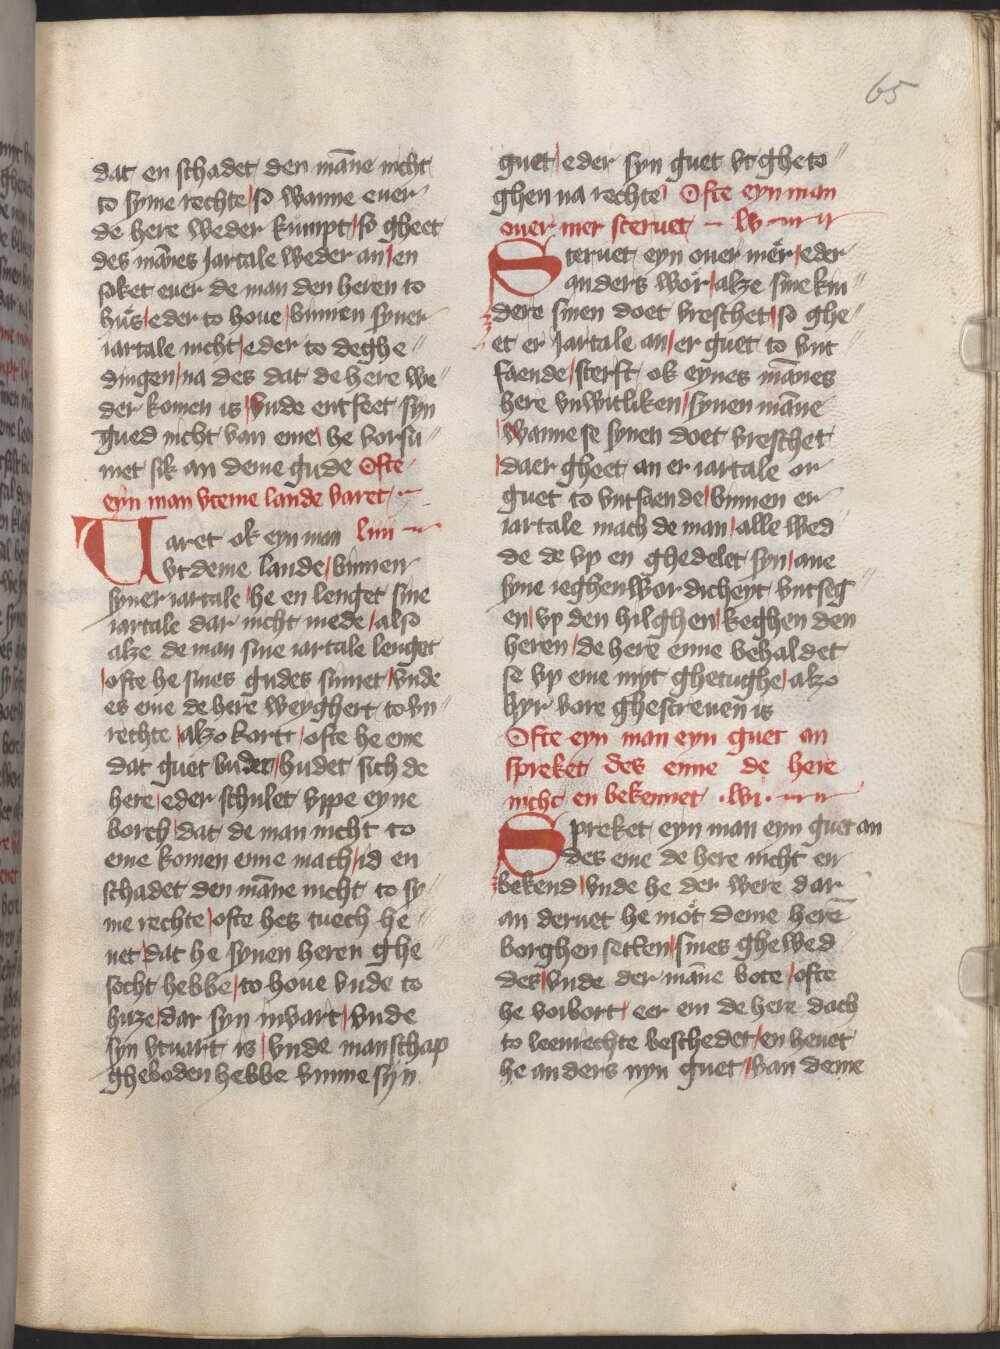 65
dat en schadet den māne nicht
to syme rechte / so wanne euer
de here weder kumpt / so gheet
des mānes jartale weder an / en
soket euer de man den heren to
hus / eder to houe / bnnen syner
iartale nicht / eder to deghe〃
dingen / na des dat de here we〃
der komen is / vnde entfeet syn
gued nicht van eme / he vorsu〃
met sik an deme gude Ofte
eyn man vteme lande varet
Uaret ok eyn man liiii
vt deme lande / bnnen
syner iartale / he en lenget sine
iartale dar nicht mede / also
alze de man sine iartale lenget
/ ofte he sines gudes sinnet / vnde
es eme de here weyghert to vn〃
rechte / alzo kort / ofte he eme
dat guet vnder / hudet sich de
here / eder schulet vppe eyne
borch / dat de man nicht to
eme komen enne mach / id en
schadet den māne nicht to sy〃
me rechte / ofte hes tuech he〃
uet / dat he synen heren ghe
socht hebbe / to houe vnde to
huze / dar syn invart / vnde
syn vtuart is / vnde manschap
gheboden hebbe vmme syn
guet / eder syn guet vt gheto〃
ghen na rechte / Ofte eyn man
ouer mer steruet lv
Steruet eyn ouer mer / eder
anders wor / alze sine kin〃
dere sinen doet vreschet / so ghe〃
et er jartale an / er guet to vnt〃
faende / sterft ok eynes mānes
here vnwitliken / synen māne
/ wanne se synen doet vreschet
/ daer gheet an er iartale or
guet to vntfaende / bnnen er
iartale mach de man / alle wed
de de vp en ghedelet syn / ane
syne ieghenwordicheyt vntseg〃
en / vp den hilghen / keghen den
heren / de here enne behaldet
se vp eme myt ghetughe / alzo
hyr vore ghescreuen is
Ofte eyn man eyn guet an
spreket des enne de here
nicht en bekennet .lvi.
Spreket eyn man eyn guet an
des eme de here nicht en
bekend / vnde he der were dar
an deruet he mot deme herē
borghen setten / sines ghewed
des / vnde der māne bote / ofte
he vorbort / eer em de here dach
to leenrechte beschedet / en heuet
he anders nyn guet / van deme